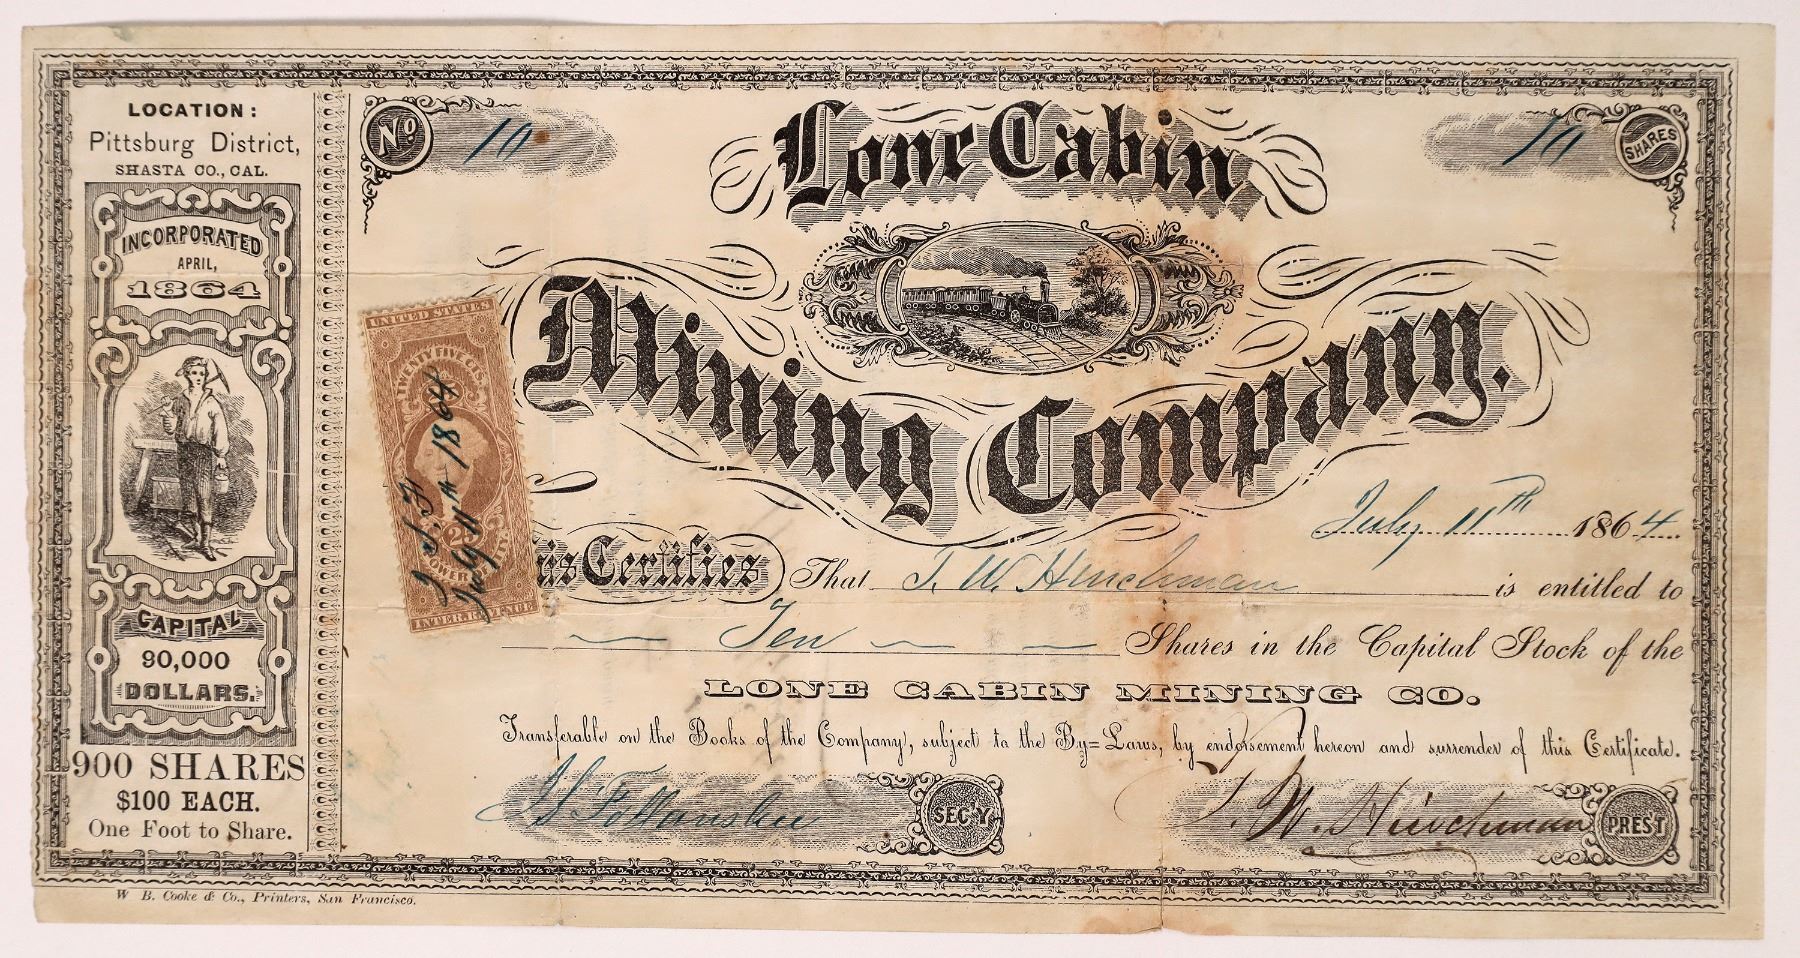 LOCATION:
Pittsburg District,
SHASTA CO., CAL.
INCORPORATED
APRIL,
1864
CAPITAL
90,000
DOLLARS.
900 SHARES
$100 EACH.
One Foot to Share.
No 10
10 SHARES
Lone Cabin
Mining Company.
UNITED STATES
TWENTY FIVE CTS.
25
INTER. REVENUE
July 11th 1864
July 11th 1864
is Certifies That T. W. Hinchman is entitled to
Ten Shares in the Capital Stock of the
LONE CABIN MINING CO.
Transferable on the Books of the Company, subject to the By=Laws, by endorsement hereon and surrender of this Certificate.
Follansbee SEC'Y
T. W. Hinchman PRES'T
W B. Cooke & Co., Printers, San Francisco.